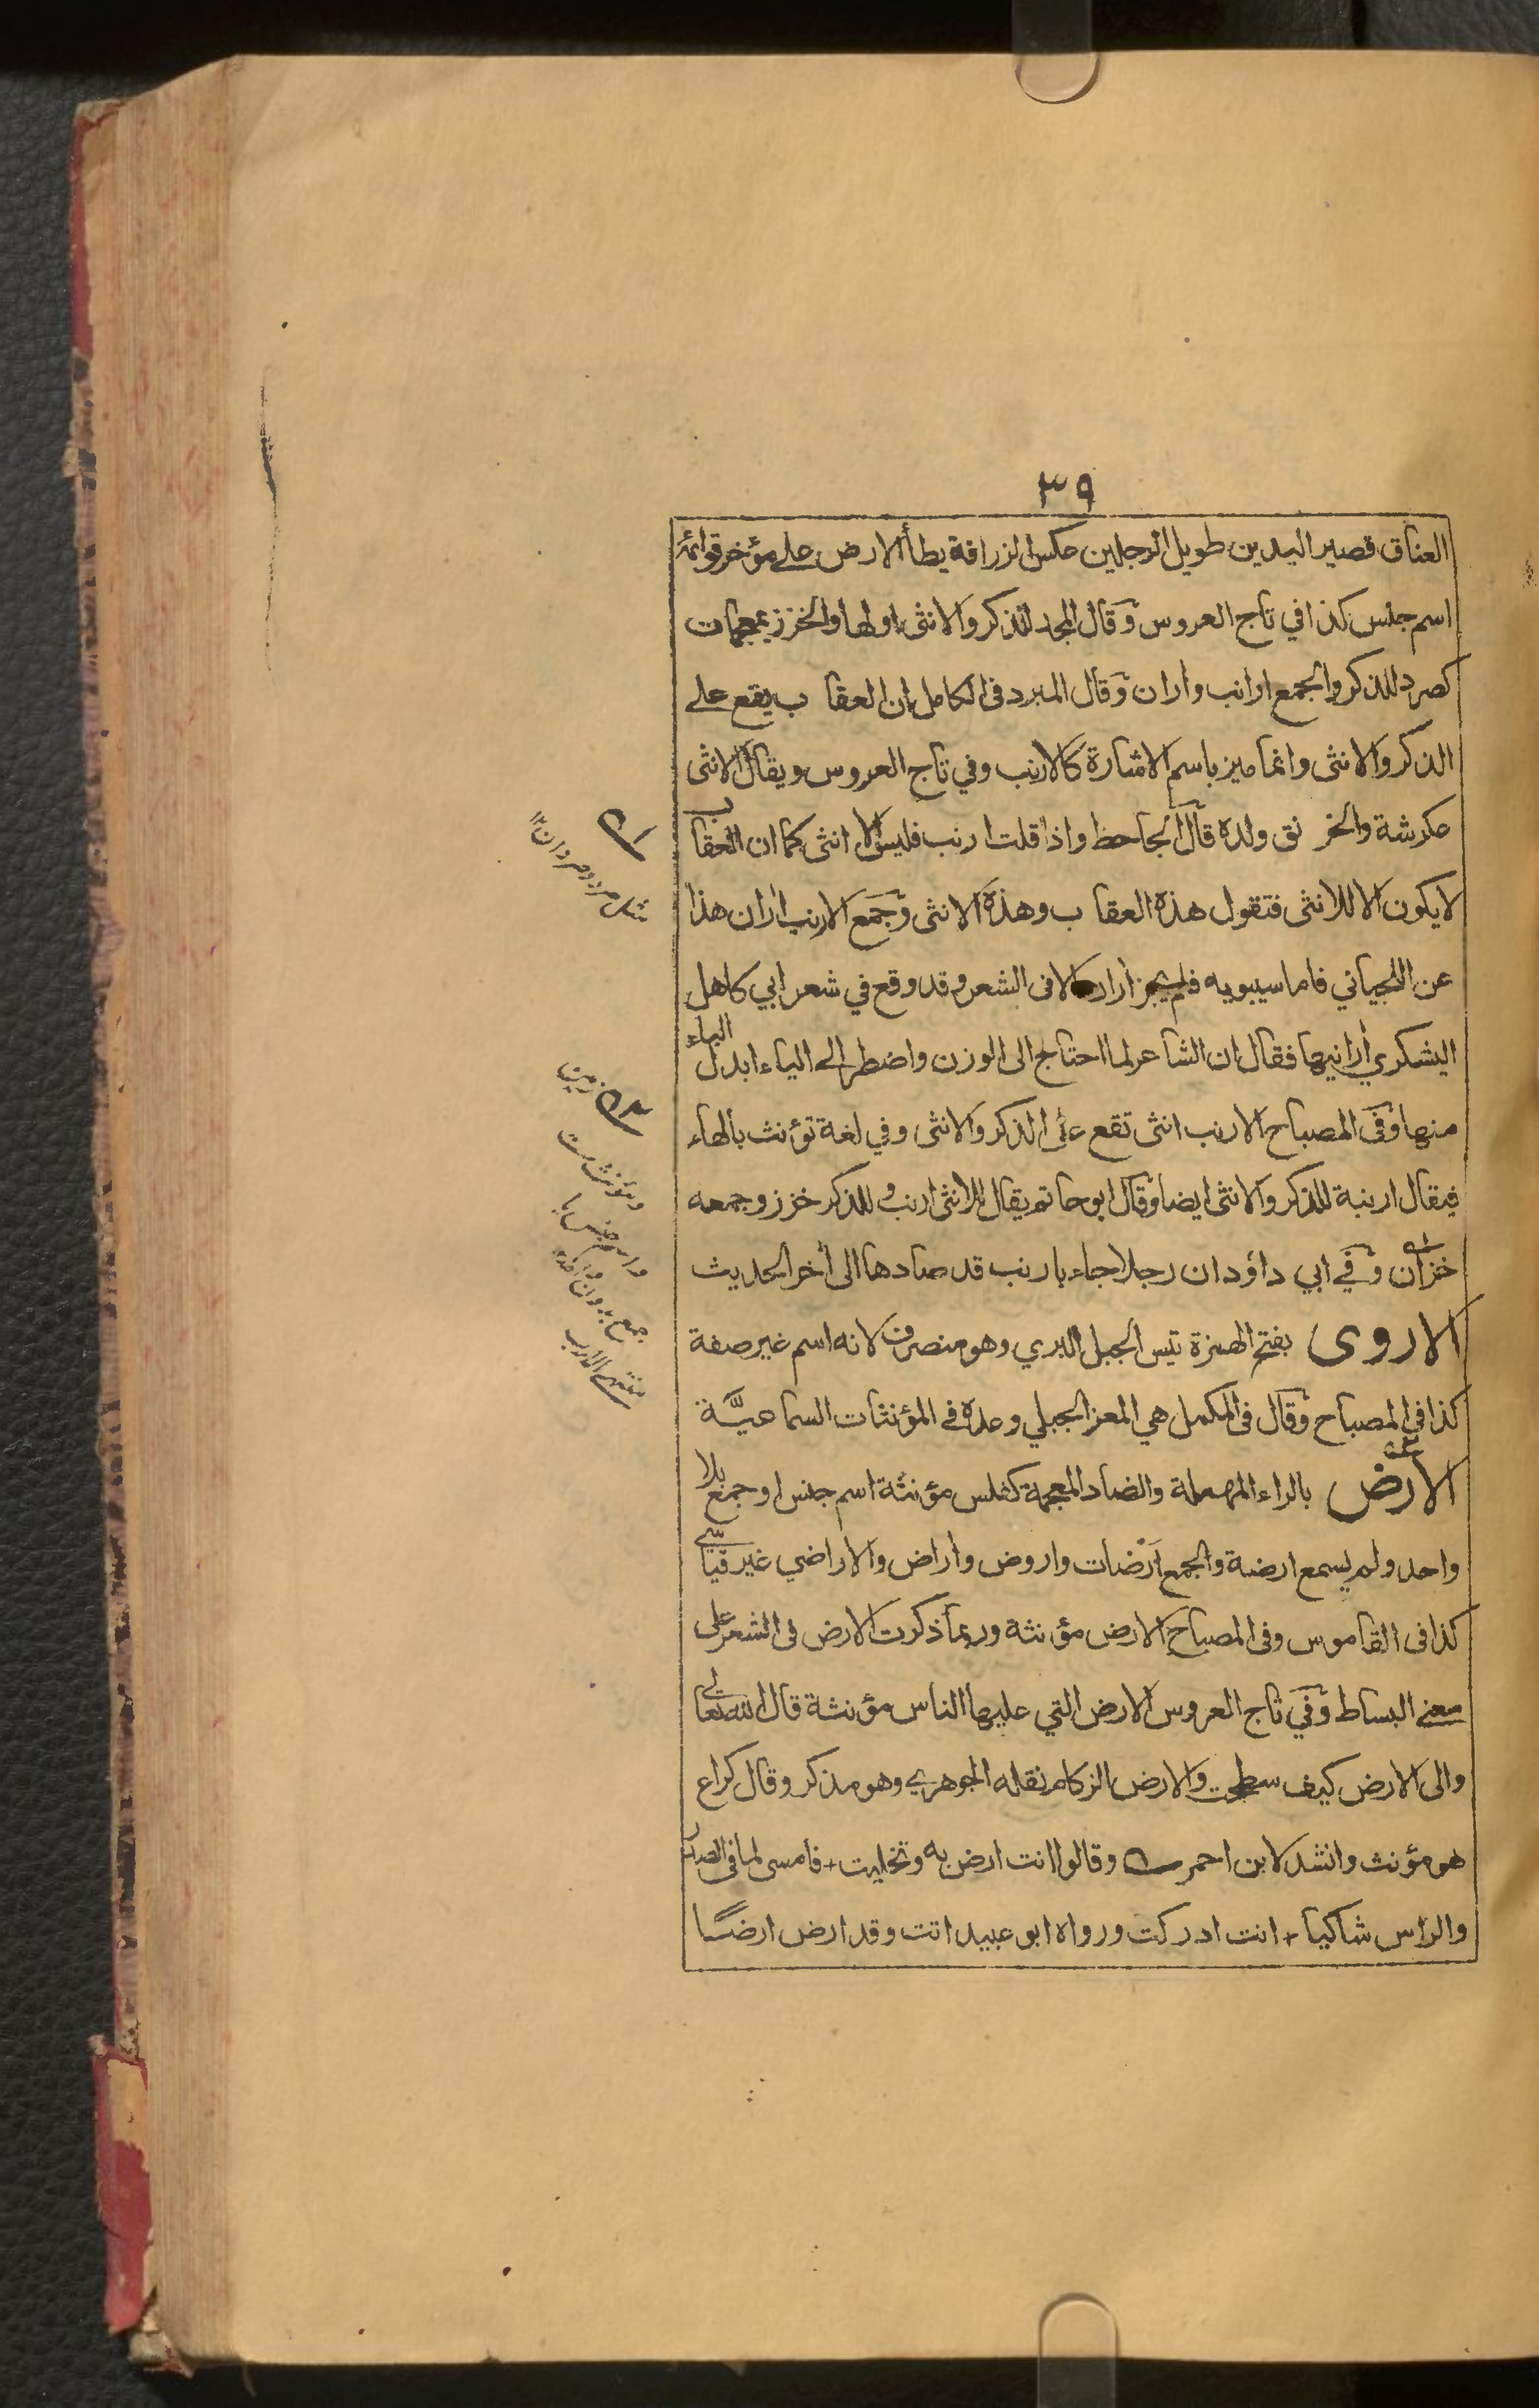 ٣٩
العناق قصير اليدين طويل الرجلين عكس الزرافة يطأ الارض على مؤخر قوائمه
اسم جنس كذا في تاج العروس وقال المجد للذكر والانثى اولها والخزز بمعجمات
كصرد للذكر والجمع ارانب واران وقال المبرد فى الكامل ان العقاب يقع على
الذكر والانثى وانما ميز باسم الاشارة كالارنب وفي تاج العروس ويقال الانثى
عكرشة والخرنق ولده قال الجاحظ واذا قلت ارنب فليس الا انثى كما ان العقاب
لا يكون الا للانثى فتقول هذه العقاب وهذه الانثى وجمع الارنب اران هذا
عن اللحياني فاما سيبويه فلم يجز اران الا فى الشعر وقد وقع في شعر ابي كاهل
اليشكري أرانيها فقال ان الشاعر لما احتاج الى الوزن واضطر الى الياء ابدل الباء
منها وفى المصباح الارنب انثى تقع على الذكر والانثى وفي لغة تؤنث بالهاء
فيقال ارنبة للذكر والانثى ايضا وقال ابو حاتم يقال للانثى ارنب وللذكر خزز وجمعه
خزان وفي ابي داؤد ان رجلا جاء بارنب قد صادها الى أخر الحديث
الاروى بفتح الهمزة تيس الجبل البري وهو منصرف لانه اسم غير صفة
كذا فى المصباح وقال فى المكمل هي المعز الجبلي وعده في المؤنثات السماعيَّة
الارض بالراء المهملة والضاد المعجمة كفلس مؤنثة اسم جنس او جمع بلا
واحد ولم يسمع ارضة والجمع اَرْضات واروض وأراض والاراضي غير قياسي
كذا فى القاموس وفى المصباح الارض مؤنثة وربما ذكرت الارض فى الشعر على
معنى البساط وفي تاج العروس الارض التي عليها الناس مؤنثة قال الله تعالى
والى الارض كيف سطحت والارض الزكام نقله الجوهري وهو مذكر وقال كراع
هو مؤنث وانشد لابن احمر وقالوا انت ارض به وتخليت + فامسى لما فى الصدر
والراس شاكيا + انت ادركت ورواه ابو عبيد اتت وقد ارض ارضًا
١ مثل صرد وصردان ١٢
٢ زمين
ومؤنث ست
واسم جنس يا
جمع بدون واحده
منتهى الارب